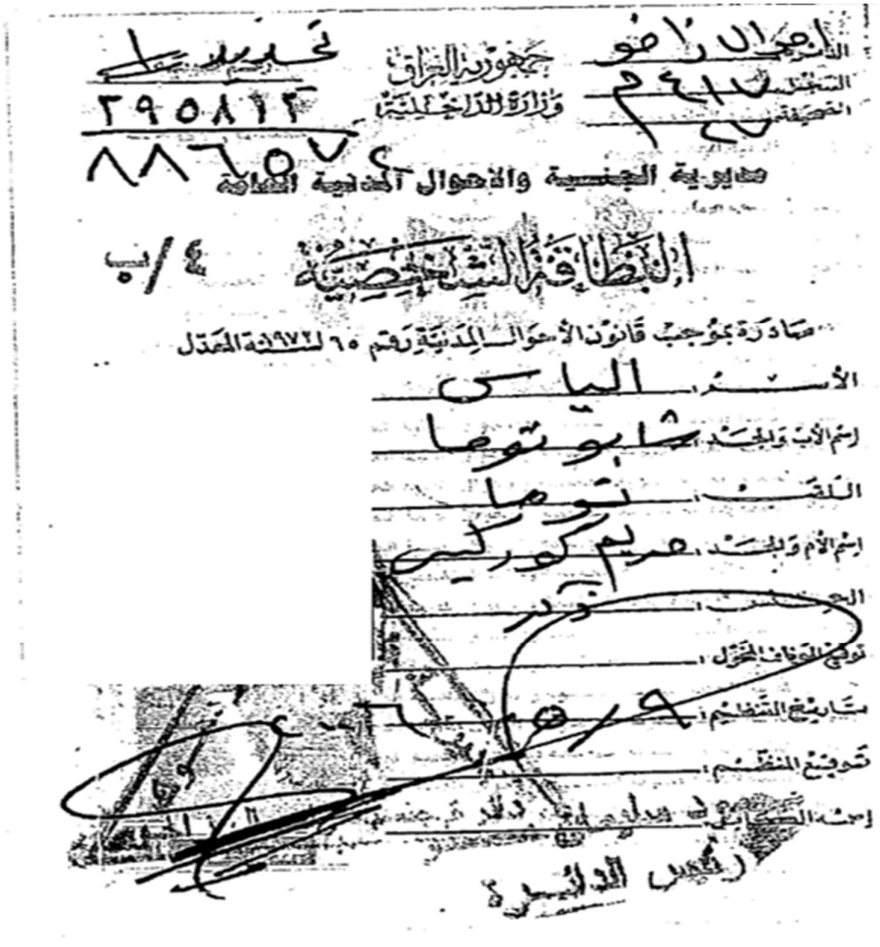 الدائرة احوال زاخو
السجل ٤١٧ م
الصحيفة
جمهورية العراق
وزارة الداخلية
تجديد
٢٩٥٨١٢
٨٨٦٥٧٢
مديرية الجنسية والاحوال المدنية العامة
البطاقة الشخصية
٤/ب
صادرة بموجب قانون الأحوال المدنية رقم ٦٥ لسنة ١٩٧٢ المعدل
الأسم : الياس
اسم الأب والجد : شابو توما
اللقب : توما
اسم الأم والجد : مريم كوركيس
الجنس : ذكر
توقيع الموظف المخول :
تاريخ التنظيم : ٩/٥/
توقيع المنظم :
اسمه الكامل
رئيس الدائرة